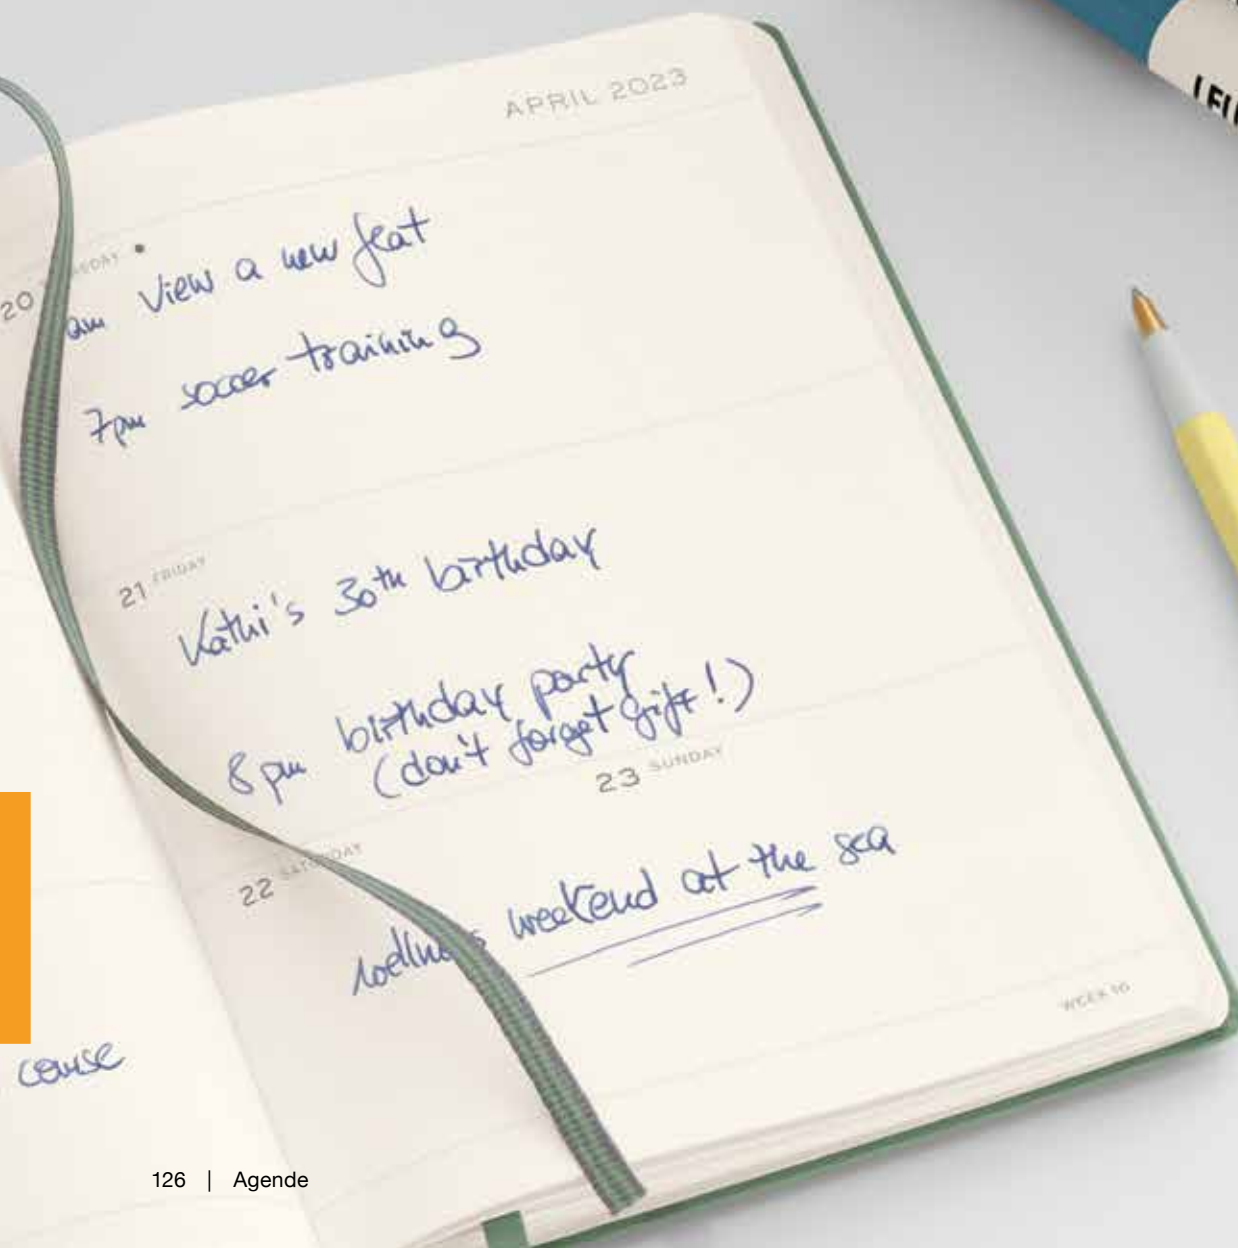 APRIL 2023
20
am View a new flat
7pm soccer training
21 FRIDAY
Kathi's 30th birthday
birthday party
8pm (don't forget gift!)
23 SUNDAY
22 SATURDAY
weekend at the sea
WEEK 16
course
126 | Agende